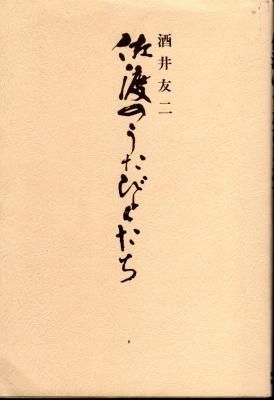 酒井友二
佐渡のうたびとたち